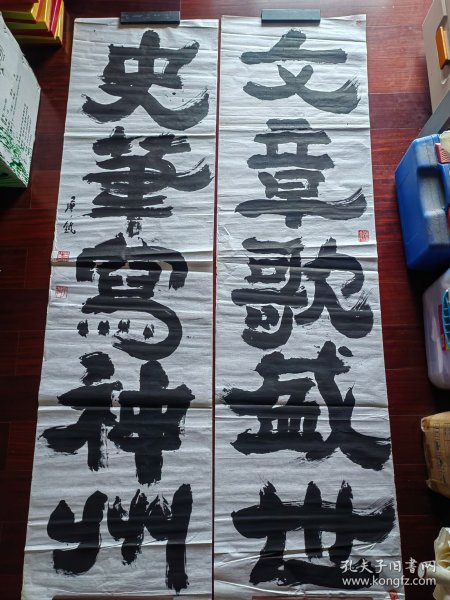 文章歌盛世
史筆寫神州
孔夫子旧书网
www.kongfz.com